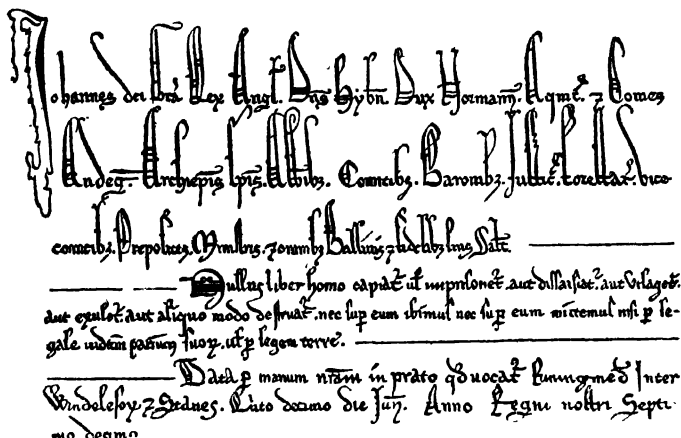 Johannes dei gra Rex Angl. Dns Hybn. Dux Normann. Aqmt. 7 Comes
Andeg. Archiepis Epis. Abbibz. Comitibz. Baronibz. Justic. Forestar. vice
comitibz. Prepositis. Ministris. 7 omnibz Ballivis 7 fidelibz suis Salt.
Nullus liber homo capiat. ul imprisonet. aut dissaisiat. aut utlaget.
aut exulet. aut aliquo modo destruat. nec sup eum ibimus nec sup eum mittemus nisi p le-
gale iudicm parium suor. ul p legem terre.
Data p manum nram in prato qd vocat. Runingmed Inter
Windelesor 7 Stanes. Quito decimo die Jun. Anno Regni nostri Septi
mo decimo